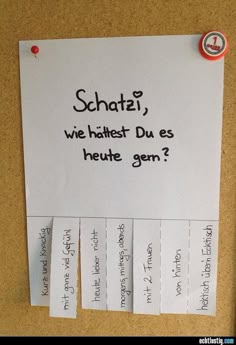 1
Schatzi,
wie hättest Du es
heute gern?
Kurz und knackig
mit ganz viel Gefühl
heute lieber nicht
morgens, mittags, abends
mit 2 Frauen
von hinten
hektisch überm Esstisch
echtlustig.com